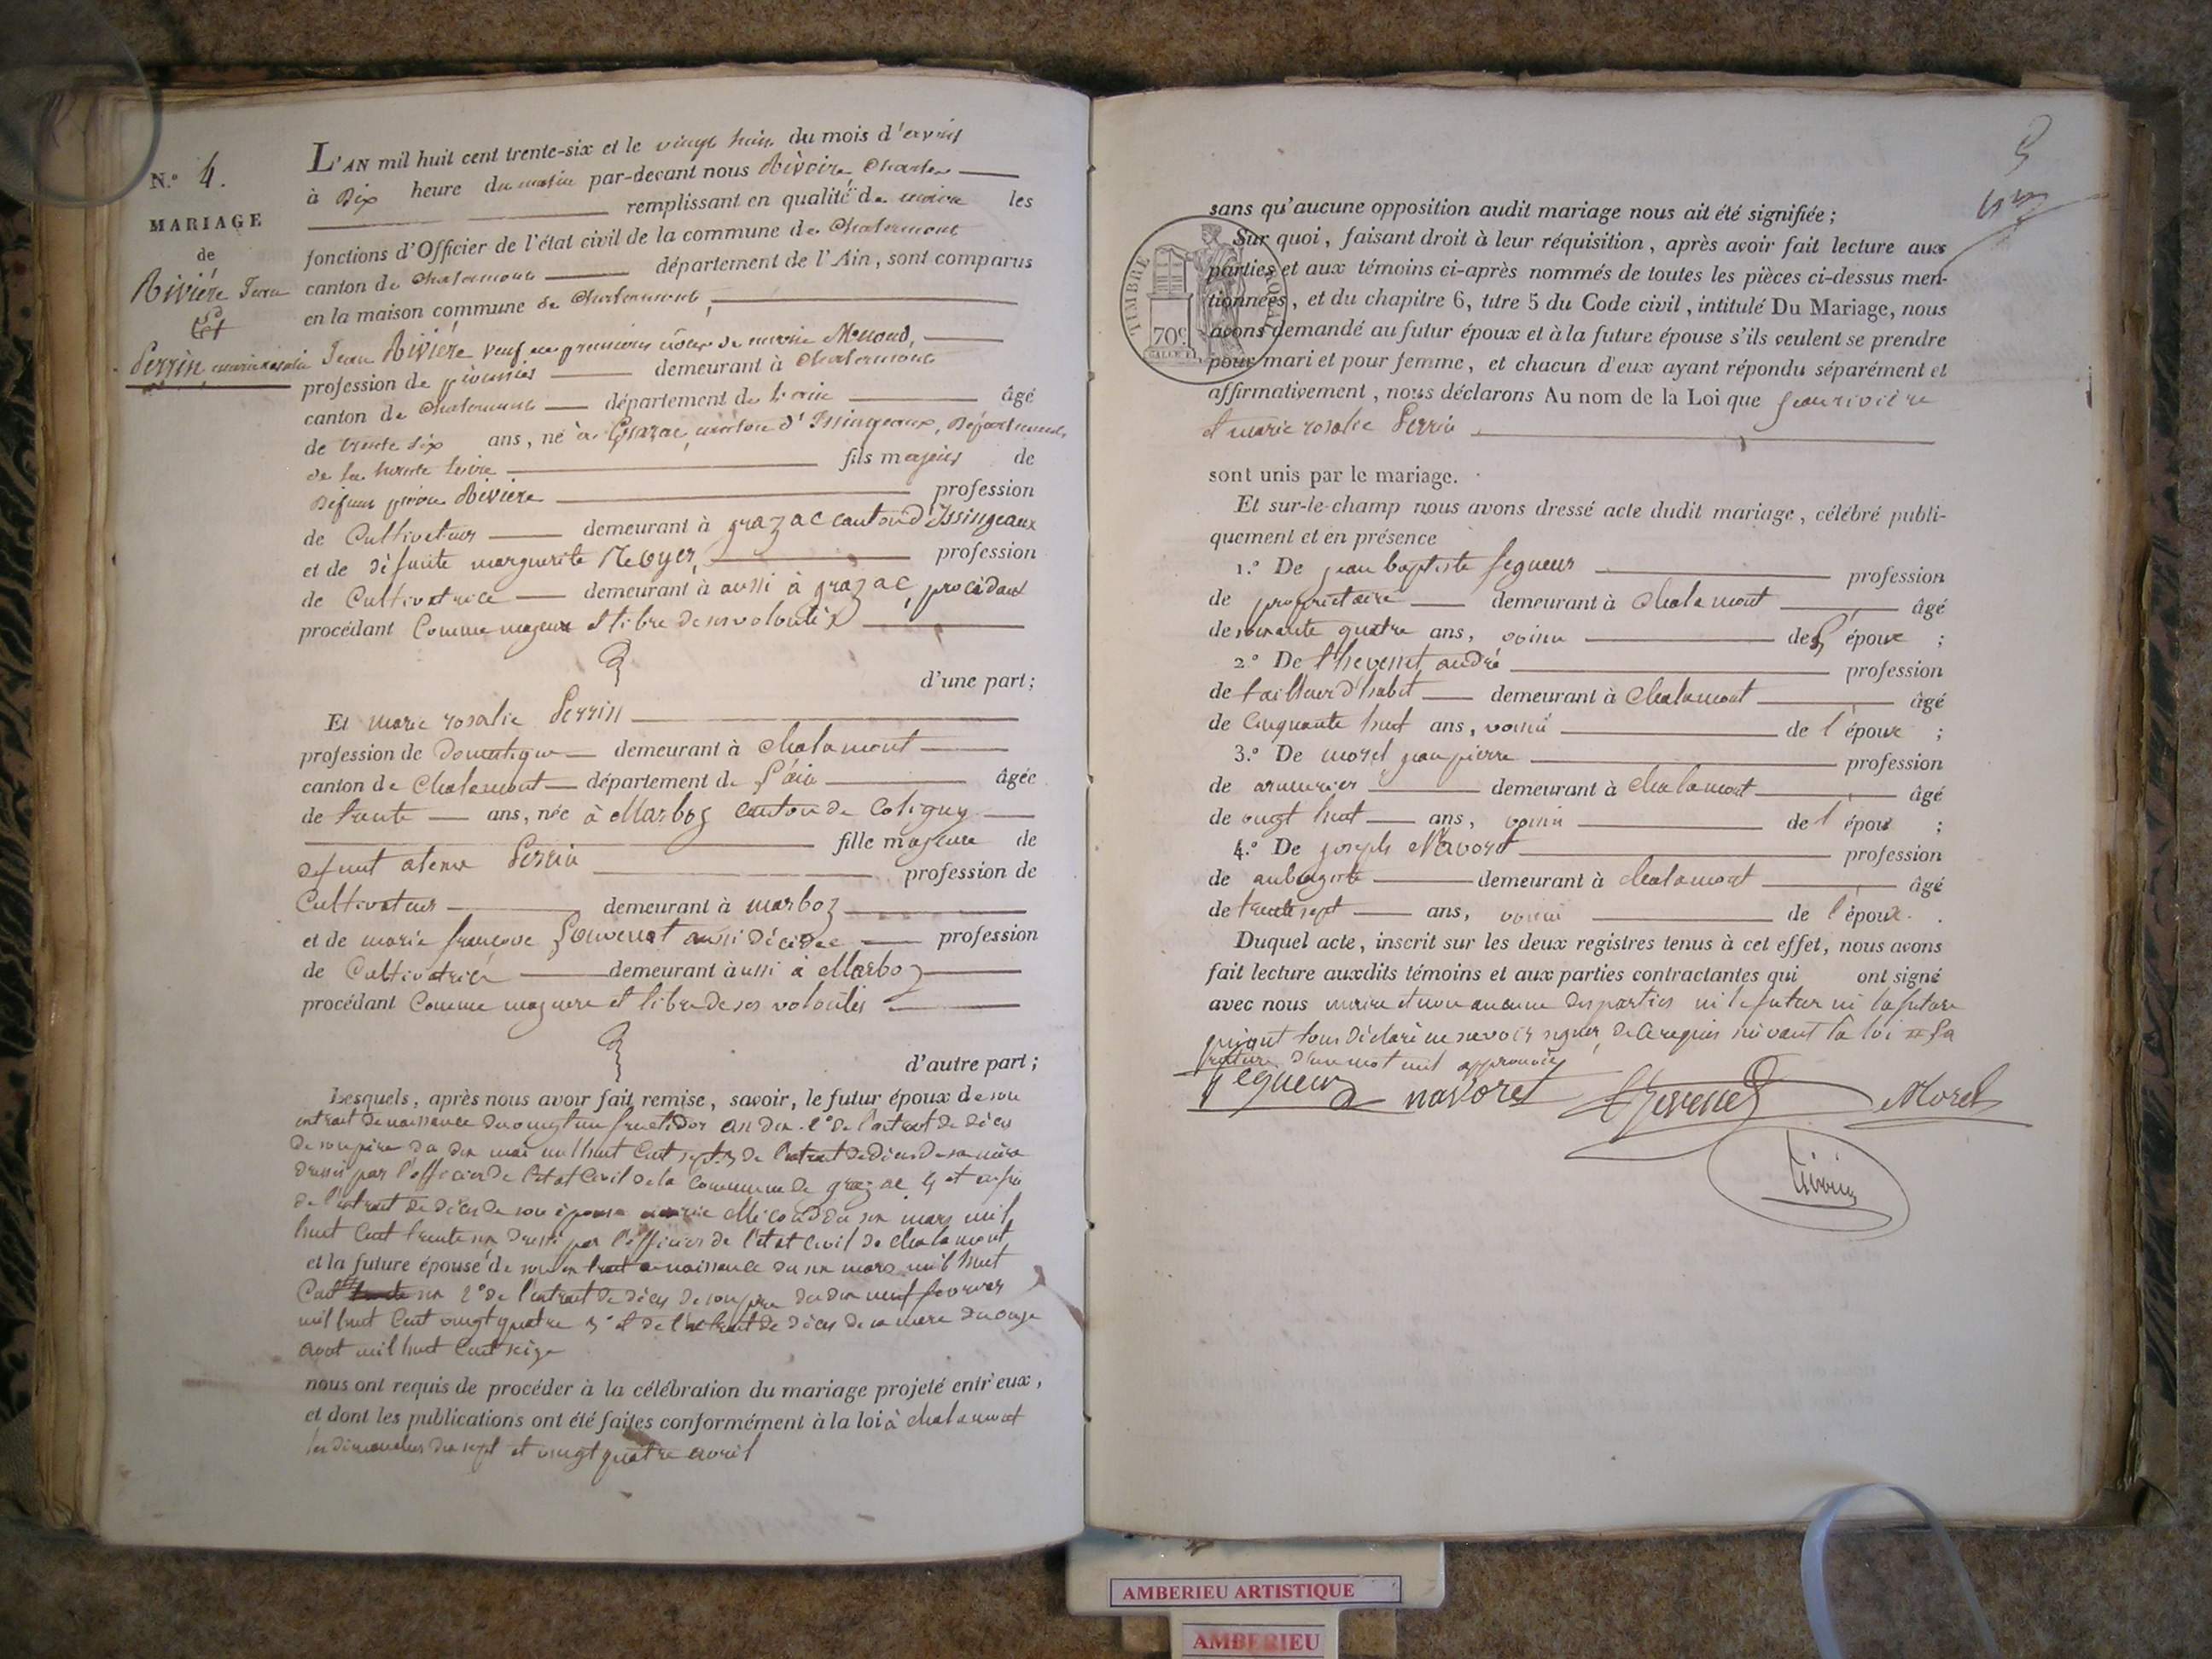 N.º 4.
MARIAGE
de
Rivière Jean
Et
Perrin, marie rosalie
L'AN mil huit cent trente-six et le vingt huit du mois d'avril
à Dix heure du matin par-devant nous Rivoire, Charles
remplissant en qualité de maire les
fonctions d'Officier de l'état civil de la commune de Chalamont
canton de Chalamont département de l'Ain, sont comparus
en la maison commune de Chalamont,
Jean Rivière veuf en premières nôces de marie
profession de demeurant à Chalamont
canton de Chalamont département de l'ain âgé
de trente six ans, né à Grazac, canton d'Issingeaux, Département
de la haute Loire fils majeur de
Défunt Rivière profession
de Cultivateur demeurant à grazac canton d'Issingeaux
et de défunte marguerite profession
de Cultivatrice demeurant à aussi à grazac, procédant
procédant Comme majeur et libre de ses volontés
d'une part;
Et marie rosalie Perrin
profession de Domestique demeurant à chalamont
canton de Chalamont département de l'ain âgée
de trente ans, née à Marboz canton de Coligny
fille majeure de
défunt Perrin profession de
Cultivateur demeurant à marboz
et de marie françoise aussi décédée profession
de Cultivatrice demeurant aussi à Marboz
procédant Comme majeure et libre de ses volontés
d'autre part;
Lesquels, après nous avoir fait remise, savoir, le futur époux de son
extrait de naissance du vingt un fructidor an dix. 2º de l'extrait de décès
de son père du dix mai mil huit Cent sept. 3º de l'extrait de décès de sa mère
dressé par l'officier de l'état Civil de la Commune de grazac 4 et enfin
de l'extrait de décès de son épouse marie du six mars mil
huit Cent trente six dressé par l'officier de l'état Civil de chalamont
et la future épouse de son extrait de naissance du six mars mil huit
Cent six 2º de l'extrait de décès de son père du dix neuf fevrier
mil huit Cent vingt quatre 3º et de l'extrait de décès de sa mère du onze
aout mil huit Cent seize
nous ont requis de procéder à la célébration du mariage projeté entr'eux,
et dont les publications ont été faites conformément à la loi à chalamont
les dimanches dix sept et vingt quatre avril
sans qu'aucune opposition audit mariage nous ait été signifiée;
Sur quoi, faisant droit à leur réquisition, après avoir fait lecture aux
parties et aux témoins ci-après nommés de toutes les pièces ci-dessus men-
tionnées, et du chapitre 6, titre 5 du Code civil, intitulé Du Mariage, nous
avons demandé au futur époux et à la future épouse s'ils veulent se prendre
pour mari et pour femme, et chacun d'eux ayant répondu séparément et
affirmativement, nous déclarons Au nom de la Loi que Jean rivière
et marie rosalie Perrin
sont unis par le mariage.
TIMBRE ROYAL
70c.
Et sur-le-champ nous avons dressé acte dudit mariage, célébré publi-
quement et en présence
1.º De jean baptiste Segueur profession
de propriétaire demeurant à Chalamont âgé
de soixante quatre ans, voisin de l'époux;
2.º De thevenet andré profession
de tailleur d'habit demeurant à Chalamont âgé
de Cinquante huit ans, voisin de l'époux;
3.º De morel jean pierre profession
de armurier demeurant à chalamont âgé
de vingt huit ans, voisin de l'époux;
4.º De joseph Navoret profession
de aubergiste demeurant à chalamont âgé
de trente sept ans, voisin de l'époux.
Duquel acte, inscrit sur les deux registres tenus à cet effet, nous avons
fait lecture auxdits témoins et aux parties contractantes qui ont signé
avec nous maire et non aucune des parties ni le futur ni la future
qui ont tous déclaré ne savoir signer, de ce requis suivant la loi # La
rature d'un mot nul approuvée
Segueur navoret Thevenet Morel
Rivoire
AMBERIEU ARTISTIQUE
AMBERIEU